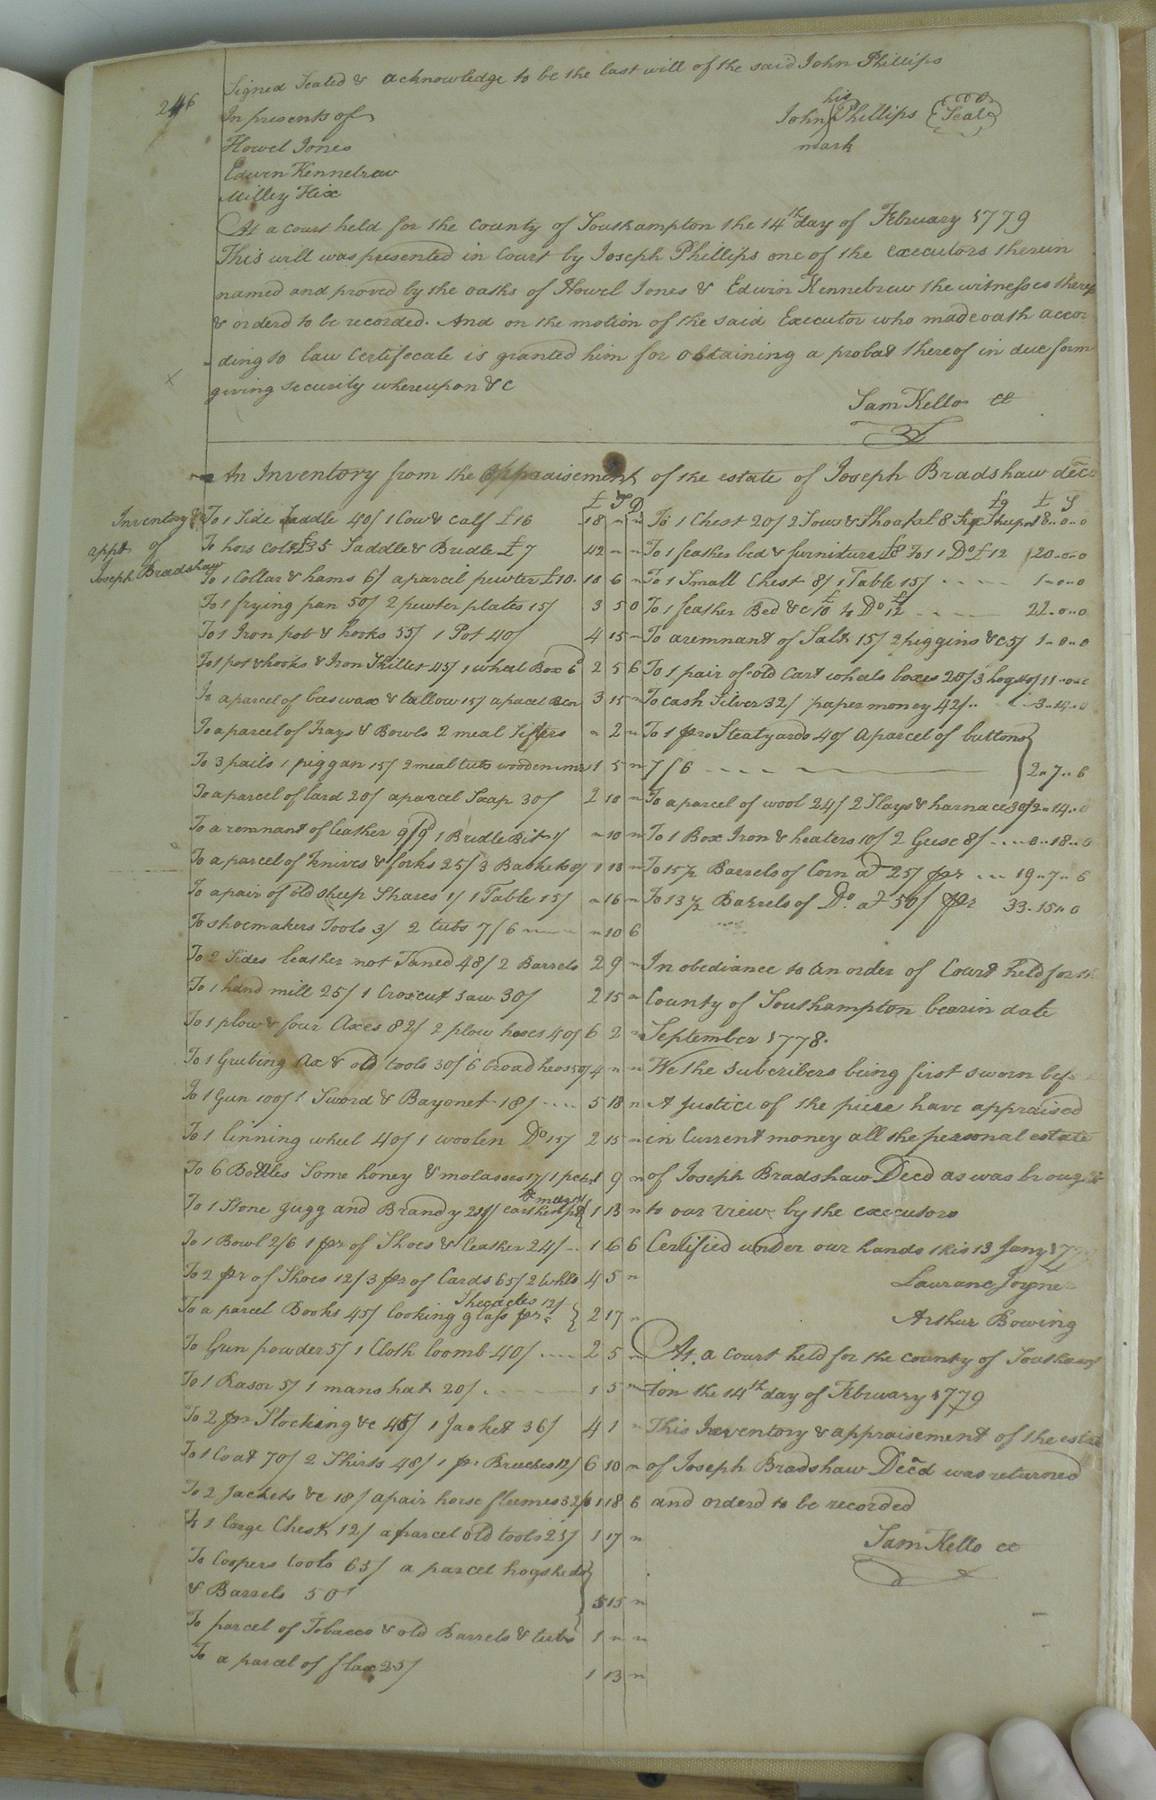 246
Signed Sealed & acknowledge to be the last will of the said John Phillips
In presents of
his
John Phillips (Seal)
mark
Howel Jones
Edwin Kennebrew
Milley Hix
At a court held for the county of Southampton the 14th day of February 1779
This will was presented in Court by Joseph Phillips one of the executors therein
named and proved by the oaths of Howel Jones & Edwin Kennebrew the witnesses thereto
& orderd to be recorded. And on the motion of the said Executor who made oath accor
ding to law Certifecate is granted him for obtaining a probat thereof in due form
giving security whereupon &c
Sam Kello Ct
Inventory &
appt of
Joseph Bradshaw
An Inventory from the appraisement of the estate of Joseph Bradshaw decd
£ S D
To 1 Side Saddle 40/ 1 Cow & calf £16 18 " "
To hors colt £35 Saddle & Bridle £7 42 " "
To 1 Collar & hams 6/ a parcil pewter £10 10 6 "
To 1 frying pan 50/ 2 pewter plates 15/ 3 5 0
To 1 Iron pot & hooks 55/ 1 Pot 40/ 4 15 "
To 1 pot & hooks & Iron Skillet 45/ 1 wheel Box 6d 2 5 6
To a parcel of beeswax & tallow 15/ a parcel 3 15 "
To a parcel of Trays & Bowls 2 meal Sifters " 2 "
To 3 pails 1 piggan 15/ 2 meal tubs wooden 1 5 "
To a parcel of lard 20/ a parcel Soap 30/ 2 10 "
To a remnant of leather 9/ 1 Bridle Bit 1/ " 10 "
To a parcel of knives & forks 25/ 3 Baskets 1 13 "
To a pair of old sheep Shares 1/ 1 Table 15/ " 16 "
To shoemakers Tools 3/ 2 tubs 7/6 " 10 6
To 2 Sides leather not Taned 48/ 2 Barrels 2 9 "
To 1 hand mill 25/ 1 Croscut Saw 30/ 2 15 "
To 1 plow & four Axes 82/ 2 plow hoes 40/ 6 2 "
To 1 Grubing Ax & old tools 30/ 6 broad hoes 50/ 4 " "
To 1 Gun 100/ 1 Sword & Bayonet 18/ 5 18 "
To 1 linning wheel 40/ 1 woolen Do 15/ 2 15 "
To 6 Bottles Some honey & molasses 17/ 1 9 "
To 1 Stone gugg and Brandy 1 13 "
To 1 Bowl 2/6 1 pr of Shoes & leather 24/ 1 6 6
To 2 pr of Shoes 12/ 3 pr of Cards 65/ 4 5 "
To a parcel Books 45/ looking glass pr Specticles 12/ 2 17 "
To Gun powder 5/ 1 Cloth loomb 40/ 2 5 "
To 1 Rasor 5/ 1 mans hat 20/ 1 5 "
To 2 pr Stocking &c 45/ 1 Jacket 36/ 4 1 "
To 1 Coat 70/ 2 Shirts 48/ 1 pr Breeches 12/ 6 10 "
To 2 Jackets &c 18/ a pair horse fleemes 1 18 6
To 1 large Chest 12/ a parcel old tools 25/ 1 17 "
To Coopers tools 65/ a parcel hogsheds
& Barrels 50/ 5 15 "
To parcel of Tobacco & old Barrels & tubs 1 " "
To a parcel of flax 25/ 1 13 "
£ S
To 1 Chest 20/ 2 Sows & Shoats £8 Six Sheep £9 18..0..0
To 1 feather bed & furniture £8 To 1 Do £12 20..0..0
To 1 Small Chest 8/ 1 Table 15/ 1..0..0
To 1 feather Bed &c £10 to Do £12 22..0..0
To a remnant of Salt 15/ 2 piggins &c 5/ 1..0..0
To 1 pair of old Cart wheels boxes 20/ 3 hogs
To cash Silver 32/ paper money 42/ 3..14..0
To 1 pr Steatyards 40/ A parcel of buttons
7/6 2..7..6
To a parcel of wool 24/ 2 Slays & harnaces 30/ 2..14..0
To 1 Box Iron & heaters 10/ 2 Geese 8/ 0..18..0
To 15½ Barrels of Corn at 25/ pr 19..7..6
To 13½ Barrels of Do at 50/ pr 33..15..0
In obediance to an order of Court held for the
County of Southampton bearin date
September 1778.
We the Subcribers being first sworn before
A Justice of the piece have appraised
in Current money all the personal estate
of Joseph Bradshaw Decd as was brought
to our view by the executors
Certified under our hands this 13 Jany
Laurance Joyner
Arthur Bowing
At a court held for the county of Southamp
ton the 14th day of February 1779
This Inventory & appraisement of the estate
of Joseph Bradshaw Decd was returned
and orderd to be recorded
Sam Kello Ct